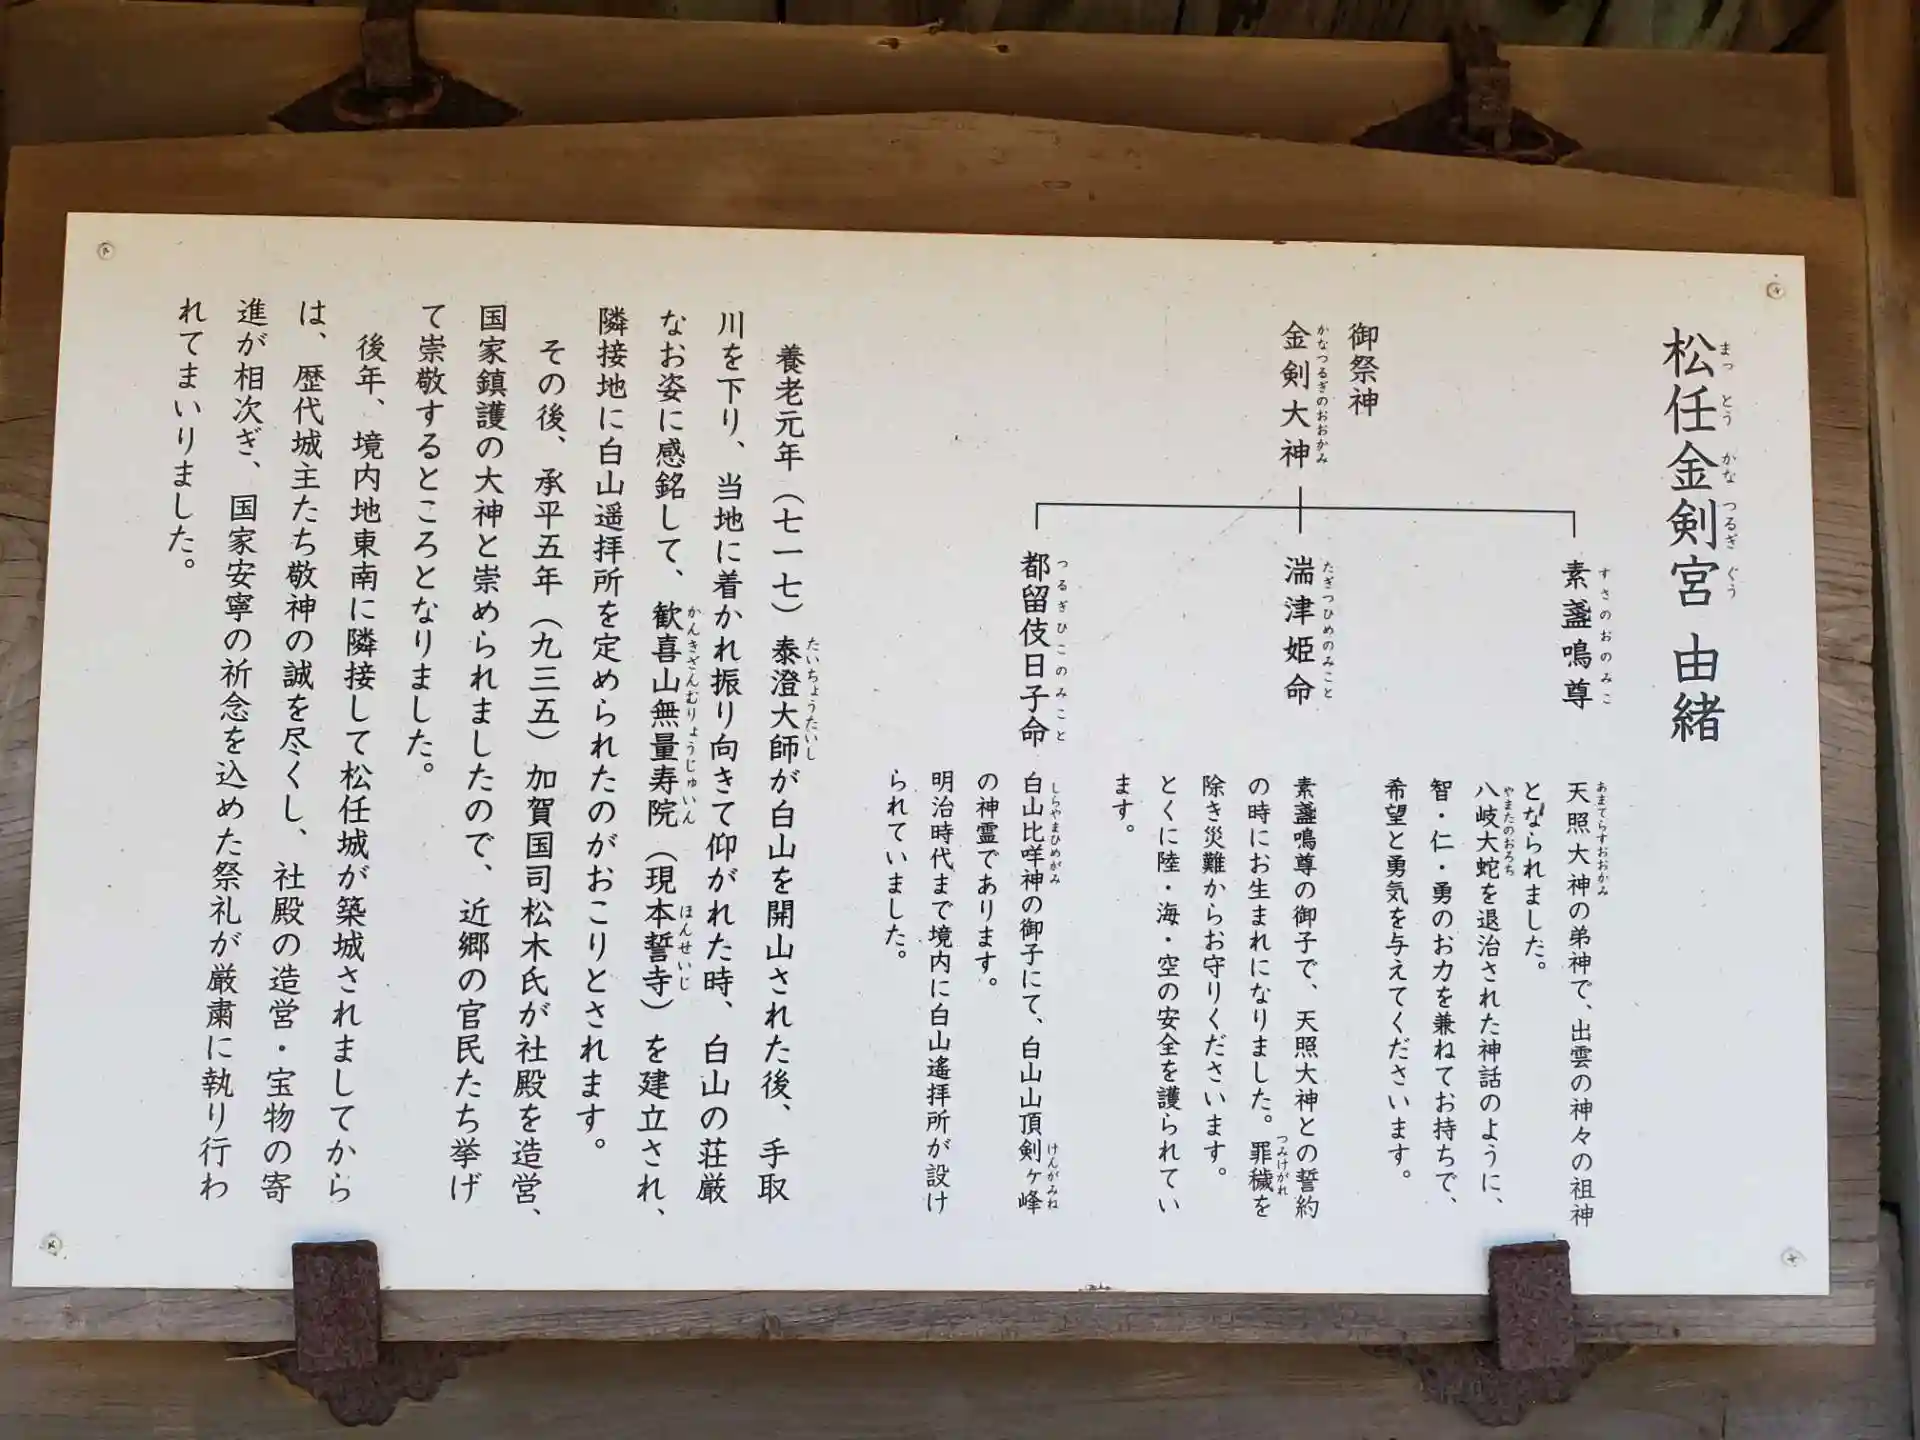 松任金剣宮 由緒
まっ とう かな つるぎ ぐう
御祭神
金剣大神
かなつるぎのおおかみ
素盞鳴尊
すさのおのみこ
天照大神の弟神で、出雲の神々の祖神
あまてらすおおかみ
となられました。
八岐大蛇を退治された神話のように、
やまたのおろち
智・仁・勇のお力を兼ねてお持ちで、
希望と勇気を与えてくださいます。
湍津姫命
たぎつひめのみこと
素盞鳴尊の御子で、天照大神との誓約
の時にお生まれになりました。罪穢を
つみけがれ
除き災難からお守りくださいます。
とくに陸・海・空の安全を護られてい
ます。
都留伎日子命
つるぎひこのみこと
白山比咩神の御子にて、白山山頂剣ヶ峰
しらやまひめがみ
けんがみね
の神霊であります。
明治時代まで境内に白山遙拝所が設け
られていました。
養老元年（七一七）泰澄大師が白山を開山された後、手取
たいちょうたいし
川を下り、当地に着かれ振り向きて仰がれた時、白山の荘厳
なお姿に感銘して、歓喜山無量寿院（現本誓寺）を建立され、
かんきざんむりょうじゅいん
ほんせいじ
隣接地に白山遥拝所を定められたのがおこりとされます。
その後、承平五年（九三五）加賀国司松木氏が社殿を造営、
国家鎮護の大神と崇められましたので、近郷の官民たち挙げ
て崇敬するところとなりました。
後年、境内地東南に隣接して松任城が築城されましてから
は、歴代城主たち敬神の誠を尽くし、社殿の造営・宝物の寄
進が相次ぎ、国家安寧の祈念を込めた祭礼が厳粛に執り行わ
れてまいりました。